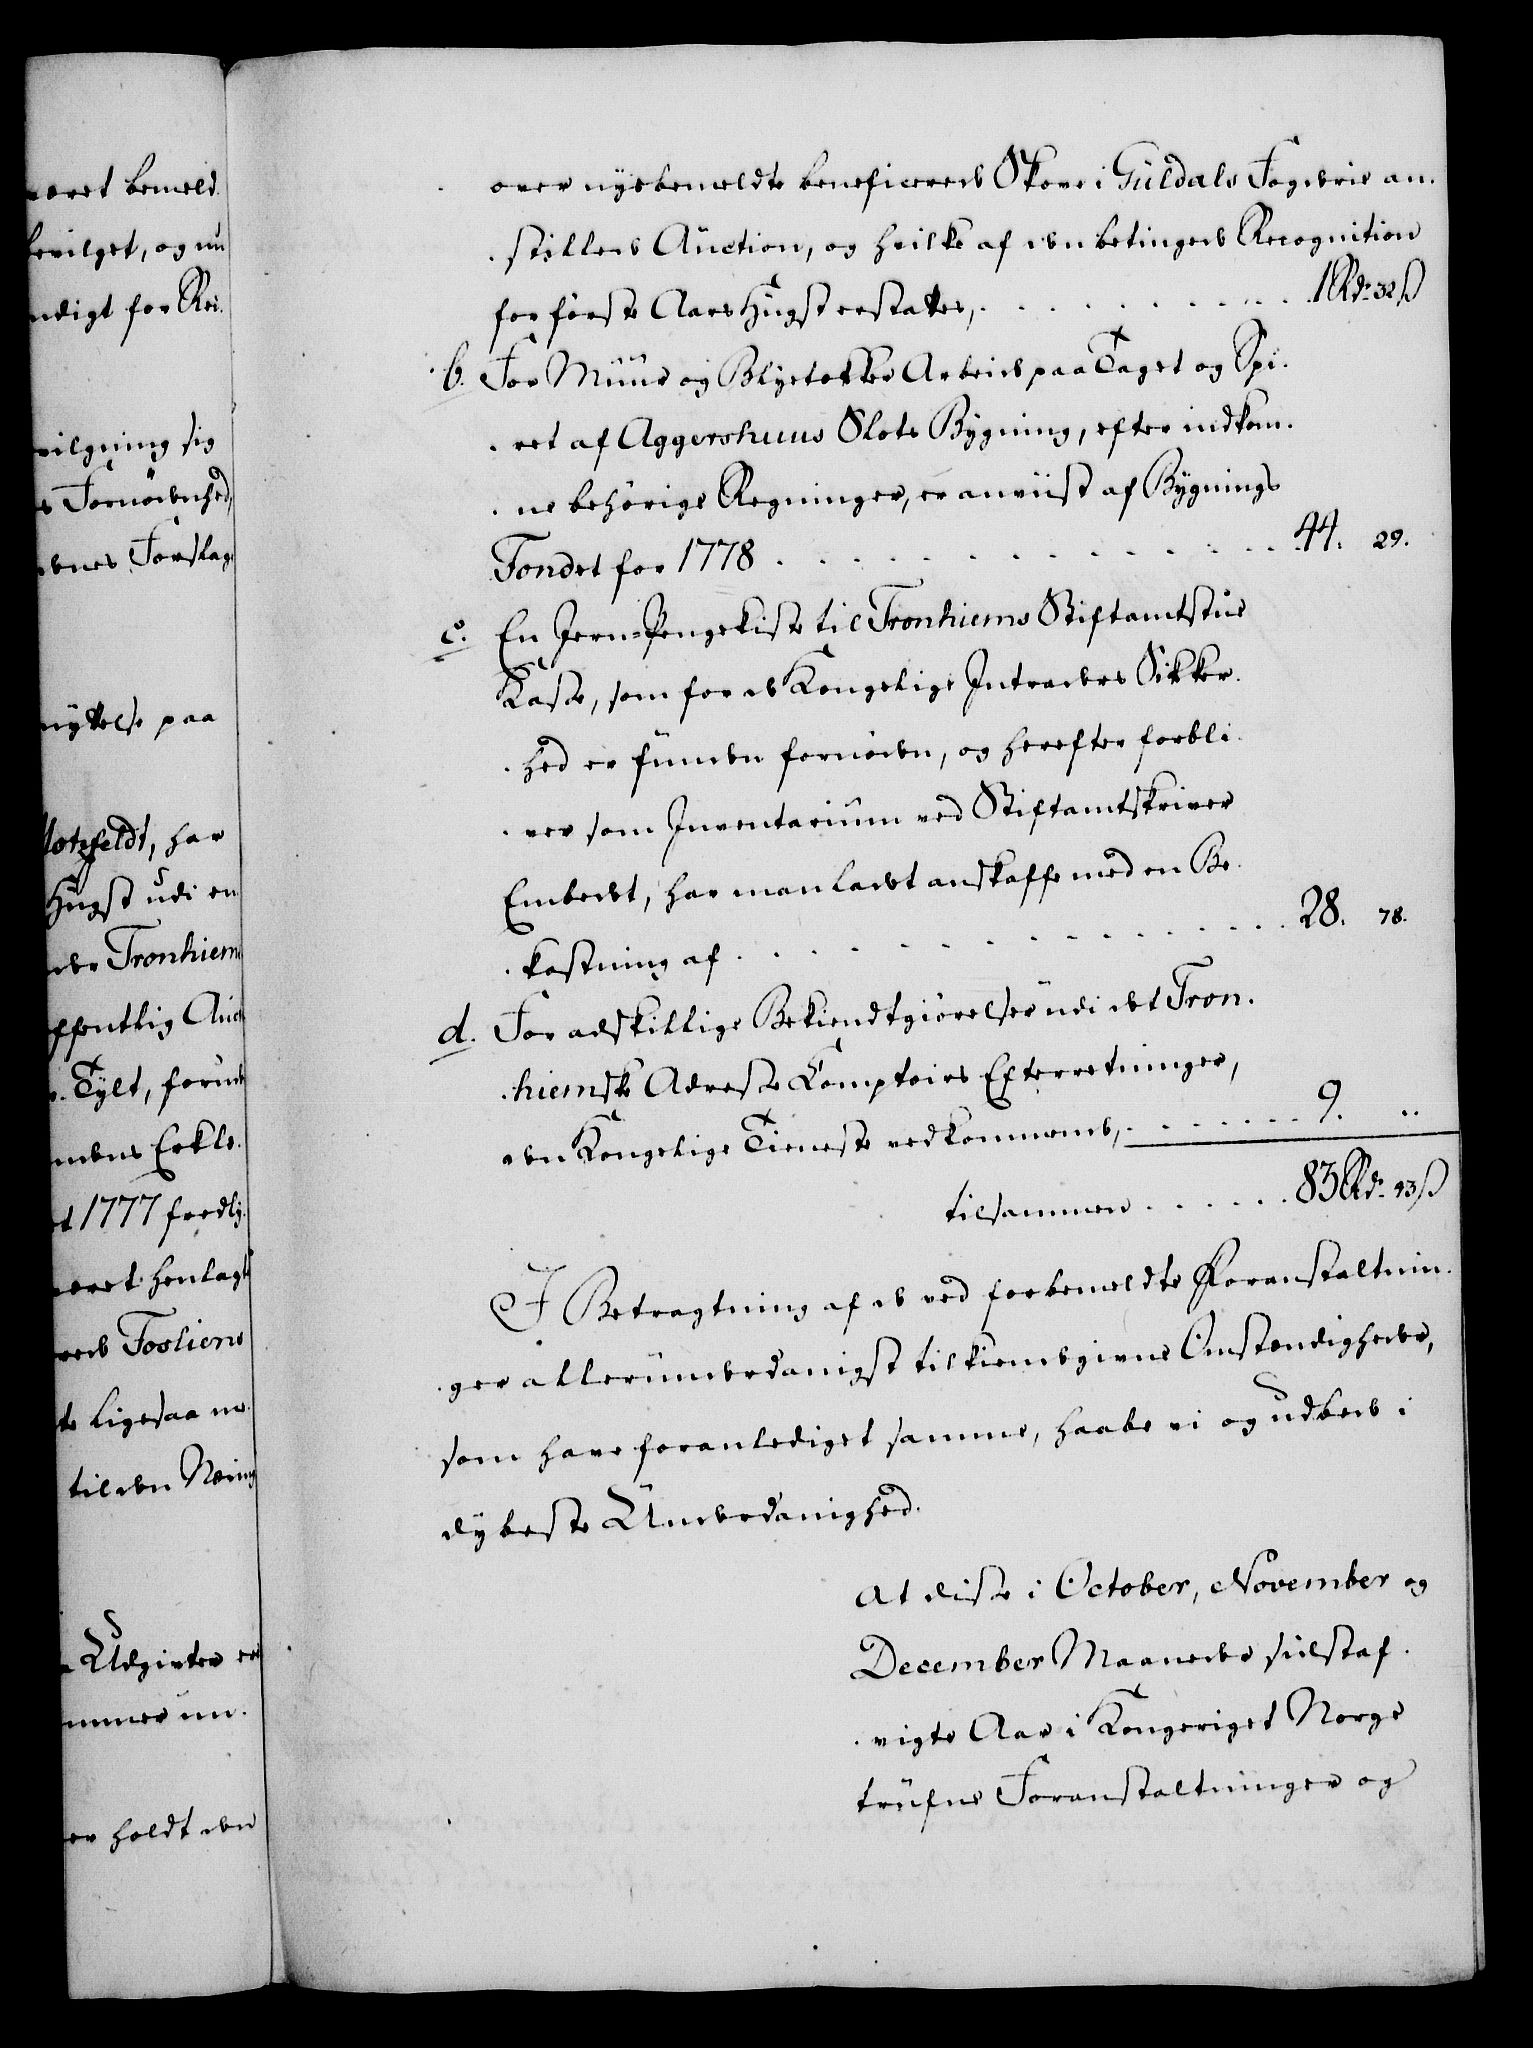 været bemeld.
bevilget, og nu
ndigt for Rei.
vilgning sig
s Fornødenhed,
denes Forslag
nyttelse paa
lotzfeldt, har
Hugst udi en
der Tronhiem
offentlig Auct
Tylt, forud
mens Erklæ.
et 1777 færdig.
været henlagt
Fosliens
te ligesaa me.
til den Næring
Udgivter er
ummer un.
er holdt den
over nysbemeldte beneficerede Skove i Guldals Fogderie an.
stillede Auction, og hvilke af den betingede Recognition
for første Aars Hugst erstattes, . . . . . . . . . 1 Rdr. 32 ß
b. For Muur og Blytækker Arbeide paa Taget og Spi.
ret af Aggershuus Slots Bygning, efter indkom.
ne behørige Regninger, er anviist af Bygnings
Fondet for 1778 . . . . . . . . . . . . 44. 29.
c. En Jern-Pengekiste til Tronhiems Stiftamtstue
Kasse, som for de Kongelige Intraders Sikker.
hed er funden fornøden, og herefter forbli.
ver som Inventarium ved Stiftamtskriver
Embedet, har man ladet anskaffe med en Be.
kostning af . . . . . . . . . . . . 28. 78.
d. For adskillige Bekiendtgiørelser udi det Tron.
hiemske Adresse Comptoirs Efterretninger,
den Kongelige Tieneste vedkommende, . . . . . . . 9. ..
tilsammen . . . . . . 83 Rdr. 43 ß
I Betragtning af de ved forbemeldte Foranstaltnin.
ger allerunderdanigst tilkiendegivne Omstændigheder,
som have foranlediget samme, haabe vi og udbede i
dybeste Underdanighed.
At disse i October, November og
December Maaneder sidstaf.
vigte Aar i Kongeriget Norge
trufne Foranstaltninger og